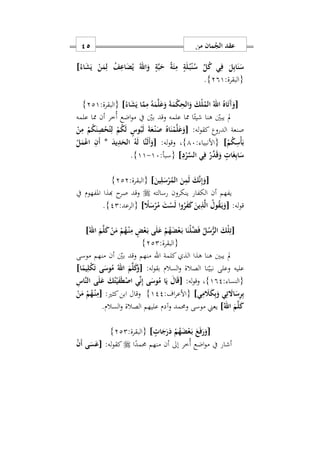 عقد الجُمان من
٤٥
[سَنَابِلَ فِي كُلِّ سُنْبُلَةٍ مِئَةُ حَبَّةٍ وَاللهُ يُضَاعِفُ لِمَنْ يَشَاءُ]
{البقرة:٢٦١}.
[وَآَتَاهُ اللهُ المُلْكَ وَالحِكْمَةَ وَعَلَّمَهُ مِمَّا يَشَاءُ] {البقرة:٢٥١}
لم يبيّن هنا شيئًا مما علمه وقد بيّن في مواضع أُخر أن مما علمه
صنعة الدروع كقوله: [وَعَلَّمْنَاهُ صَنْعَةَ لَبُوسٍ لَكُمْ لِتُحْصِنَكُمْ مِنْ
بَأْسِكُمْ] {الأنبياء:٨٠}، وقوله: [وَأَلَنَّا لَهُ الحَدِيدَ * أَنِ اعْمَلْ
سَابِغَاتٍ وَقَدِّرْ فِي السَّرْدِ] {سبأ:١٠-١١}.
[وَإِنَّكَ لَمِنَ المُرْسَلِينَ] {البقرة:٢٥٢}
يفهم أن الكفار ينكرون رسالته ﷺ وقد صرح بهذا المفهوم في
قوله: [وَيَقُولُ الَّذِينَ كَفَرُوا لَسْتَ مُرْسَلًا] {الرعد:٤٣}.
[تِلْكَ الرُّسُلُ فَضَّلْنَا بَعْضَهُمْ عَلَى بَعْضٍ مِنْهُمْ مَنْ كَلَّمَ اللهُ]
{البقرة:٢٥٣}
لم يبين هنا هذا الذي كلمه الله منهم وقد بيّن أن منهم موسى
عليه وعلى نبيّنا الصلاة والسلام بقوله: [وَكَلَّمَ اللهُ مُوسَى تَكْلِيمًا]
{النساء:١٦٤}، وقوله: [قَالَ يَا مُوسَى إِنِّي اصْطَفَيْتُكَ عَلَى النَّاسِ
بِرِسَالَاتِي وَبِكَلَامِي] {الأعراف:١٤٤} وقال ابن كثير: [مِنْهُمْ مَنْ
كَلَّمَ اللهُ] يعني موسى ومحمد وآدم عليهم الصلاة والسلام.
[وَرَفَعَ بَعْضَهُمْ دَرَجَاتٍ] {البقرة:٢٥٣}
أشار في مواضع أُخر إلى أن منهم محمدًا ﷺ كقوله: [عَسَى أَنْ